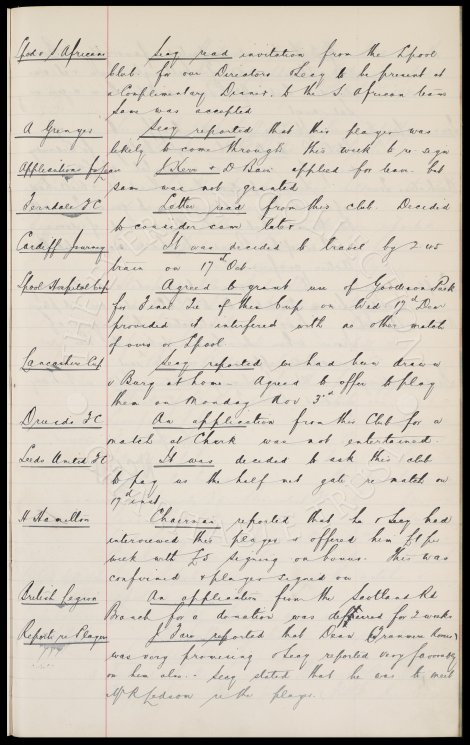 S Africans Secy read invitation from the Lpool
Club for our Directors & Secy to be present at
a Complimentary Dinner to the S. African team
Same was accepted
A Grenyer Secy reported that this player was
likely to come through this week to re-sign
Applications for J Kerr & D applied for but
same was not granted
Ferndale FC Letter read from this club. Decided
to consider same later
Cardiff Journey It was decided to travel by 2.45
train on 17th Oct.
Lpool Hospital Cup Agreed to grant use of Goodison Park
for Final Tie of this Cup on Wed 17th Decr
provided it interfered with no other match
of ours or Lpool.
Lancashire Cup Secy reported we had been drawn
v Bury at home - Agreed to offer to play
them on Monday Nov 3rd
Druids FC An application from this Club for a
match at Chirk was not entertained.
Leeds United FC It was decided to ask this club
to pay us the half net gate re match on
17th inst.
H Hamilton Chairman reported that he & Secy had
interviewed this player & offered him per
week with £5 signing on bonus. This was
confirmed & player signed on
British Legion An application from the Scotland Rd
Branch for a donation was deferred for 2 weeks
Reports re Players J Fare reported that Dean Tranmere Rovers
was very promising & Secy reported very favourably
on him also. Secy stated that he was to meet
Mr R re the player.